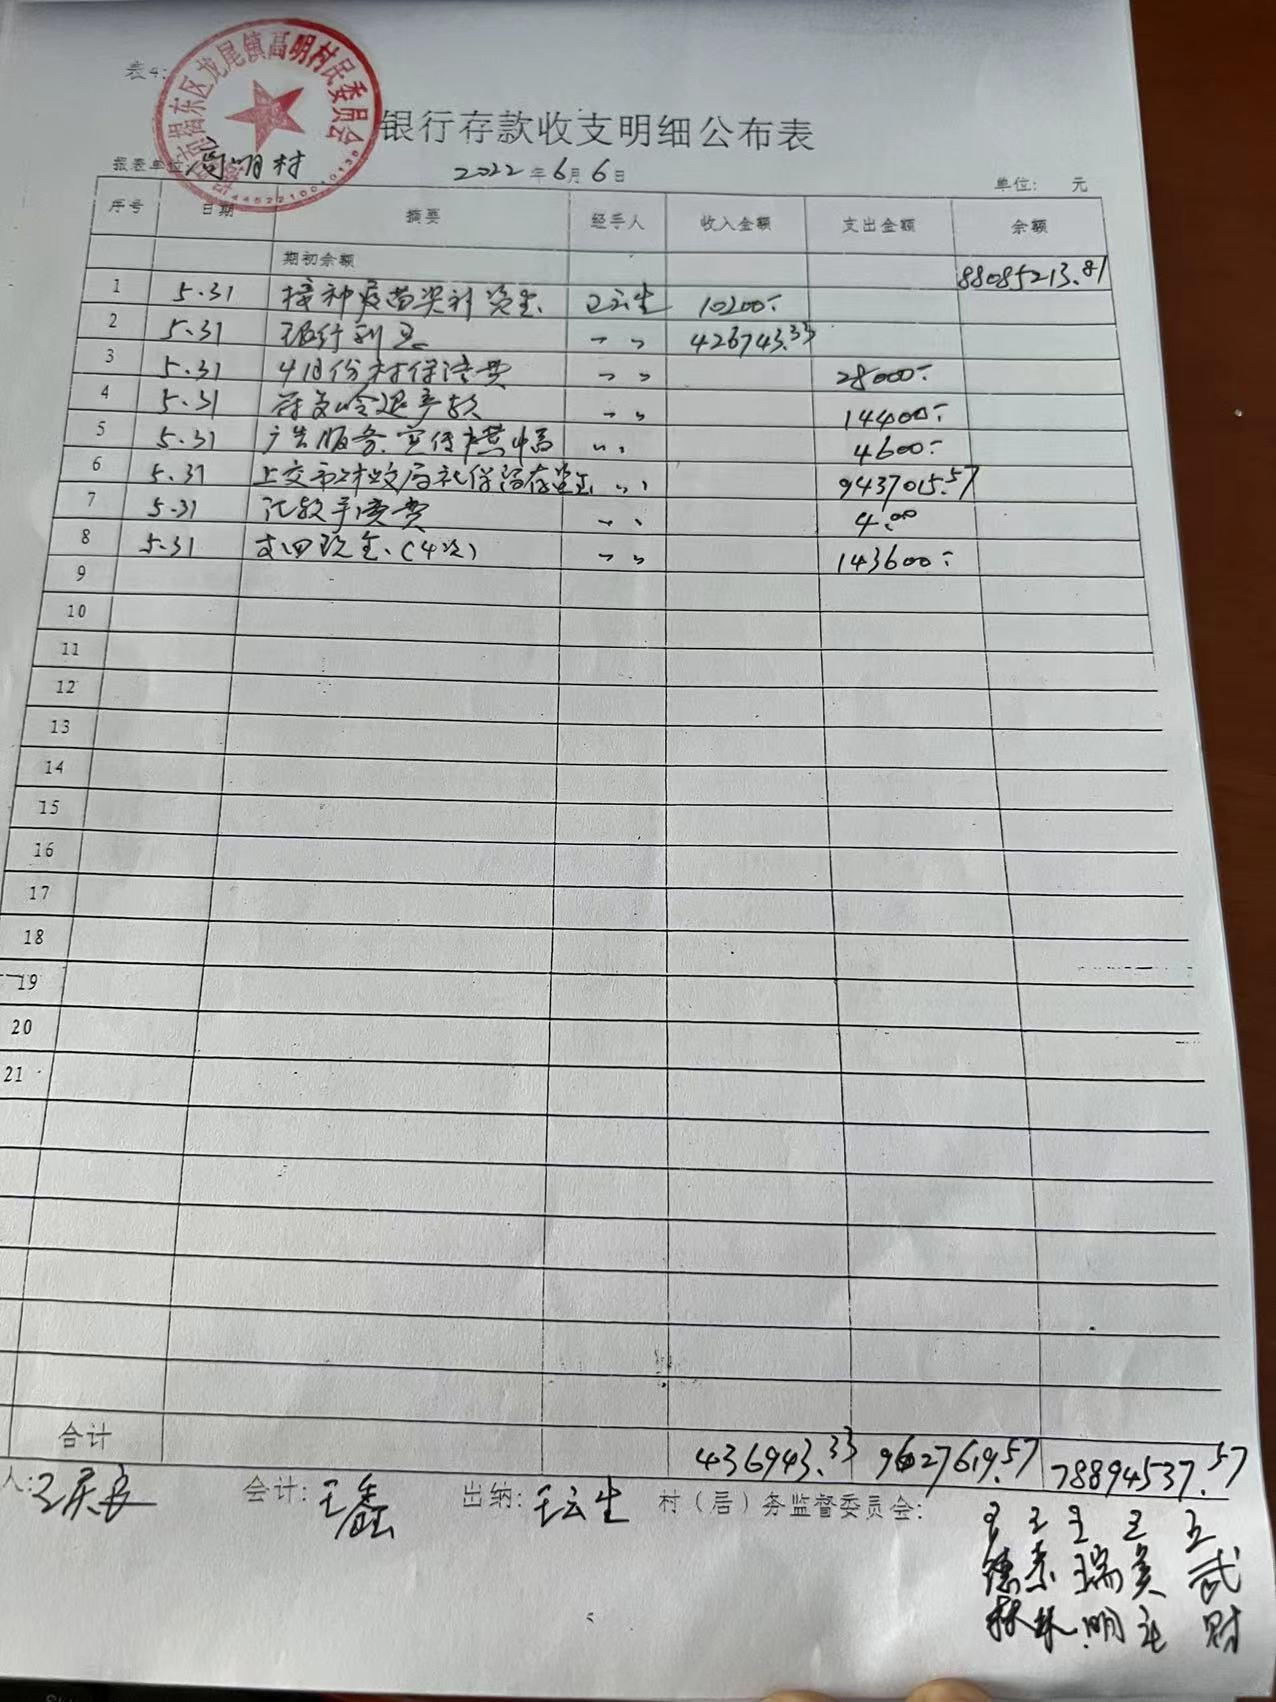 表4:
揭东区龙尾镇高明村民委员会
银行存款收支明细公布表
报表单位 高明村 2022年6月6日 单位: 元
序号 日期 摘要 经手人 收入金额 支出金额 余额
期初余额 88085213.81
1 5.31 接种疫苗奖补资金 王云生 10200.-
2 5.31 银行利息 〃 426743.33
3 5.31 4月份村保洁费 〃 28000.-
4 5.31 退 款 〃 14400.-
5 5.31 广告服务.宣传横幅 〃 4600.-
6 5.31 上交市财政局社保 资金 〃 9437015.57
7 5.31 汇款手续费 〃 4.00
8 5.31 支回现金(4次) 〃 143600.-
9
10
11
12
13
14
15
16
17
18
19
20
21
合计 436943.33 9627619.57 78894537.57
人: 王 会计: 王鑫 出纳: 王云生 村（居）务监督委员会:
王 王 王 王 王
德 瑞 美 武
林 林 明 财
5